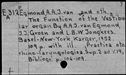 Egmond, A.A.J. van and oth.
The Function of the Vestibu
lar organ By A.A.J. van Egmond,
J.J. Groen and L.B.W. Jongkees.
Basel-New York Karger, 1952
109 p. with ill. Practica oto
rhino-laryngologica Sup. 2
Bibliogr. p. 104-109